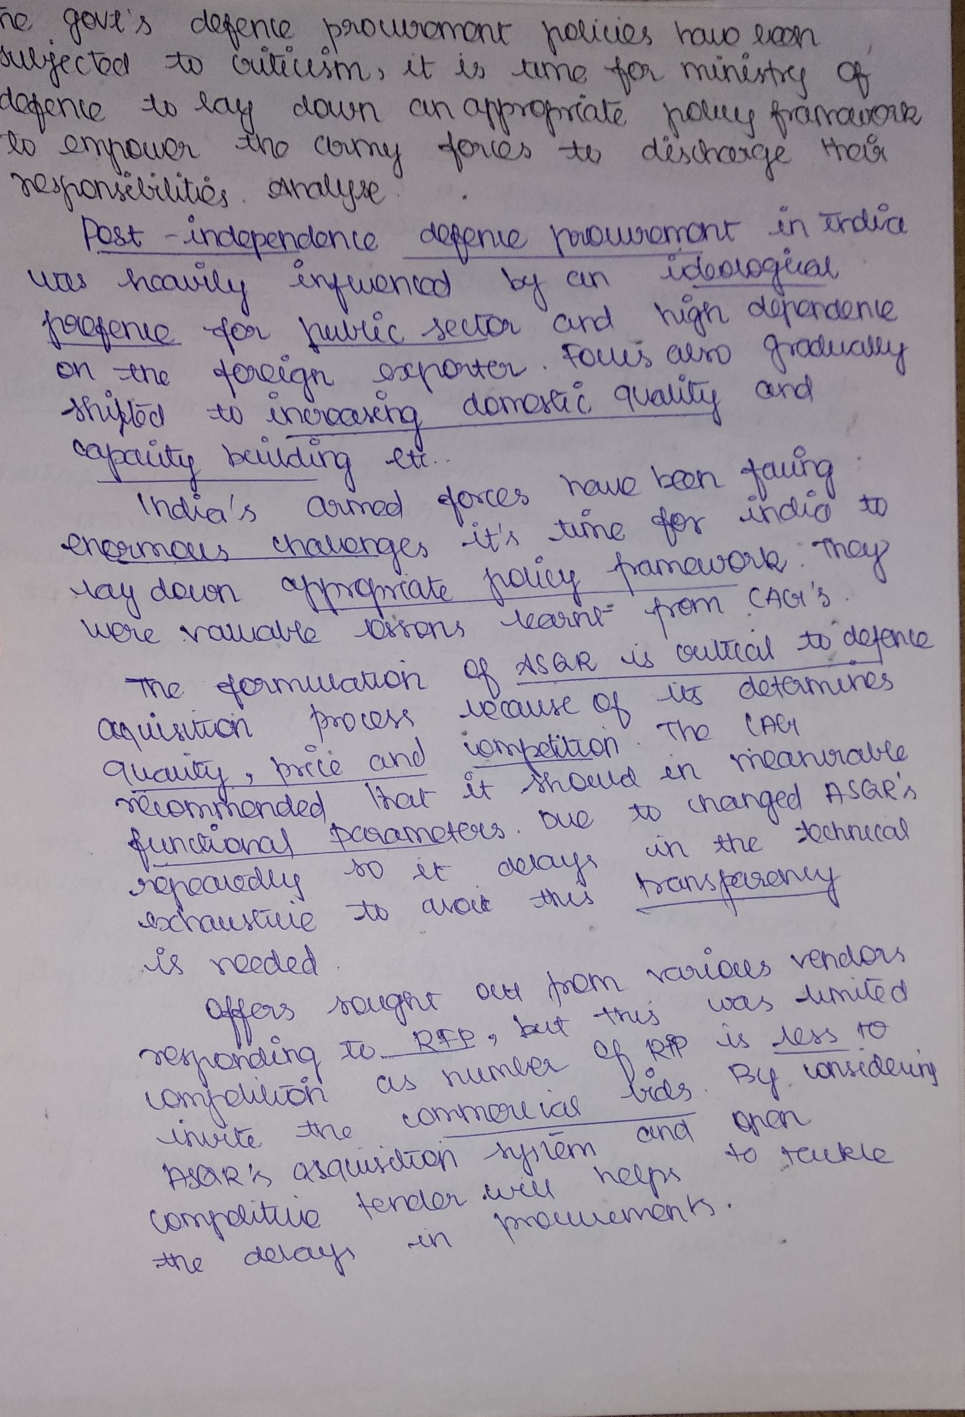 he govt's defence procurement policies have been
subjected to criticism, it is time for ministry of
defence to lay down an appropriate policy framework
to empower the army forces to discharge their
responsibilities. Analyse.
Post-independence defence procurement in India
was heavily influenced by an ideological
prefence for public sector and high dependence
on the foreign exporter. Focus also gradually
shifted to increasing domestic quality and
capacity building etc..
India's armed forces have been facing
enormous challenges it's time for india to
lay down appropriate policy framework. They
were valuable lessons learnt from CAG's.
The formulation of ASQR is critical to defence
aquisition process because of its determines
quality, price and competition. The CAG
recommended that it should in meanurable
functional parameters. Due to changed ASQR's
repeatedly so it delays in the technical
exhaustive to avoit this transparency
is needed.
Offers sought out from various vendors
responding to RFP, but this was limited
competition as number of RFP is less to
invite the commercial bids. By considering
ASQR's asquisition system and open
competitive tender will helps to tackle
the delays in procurements.